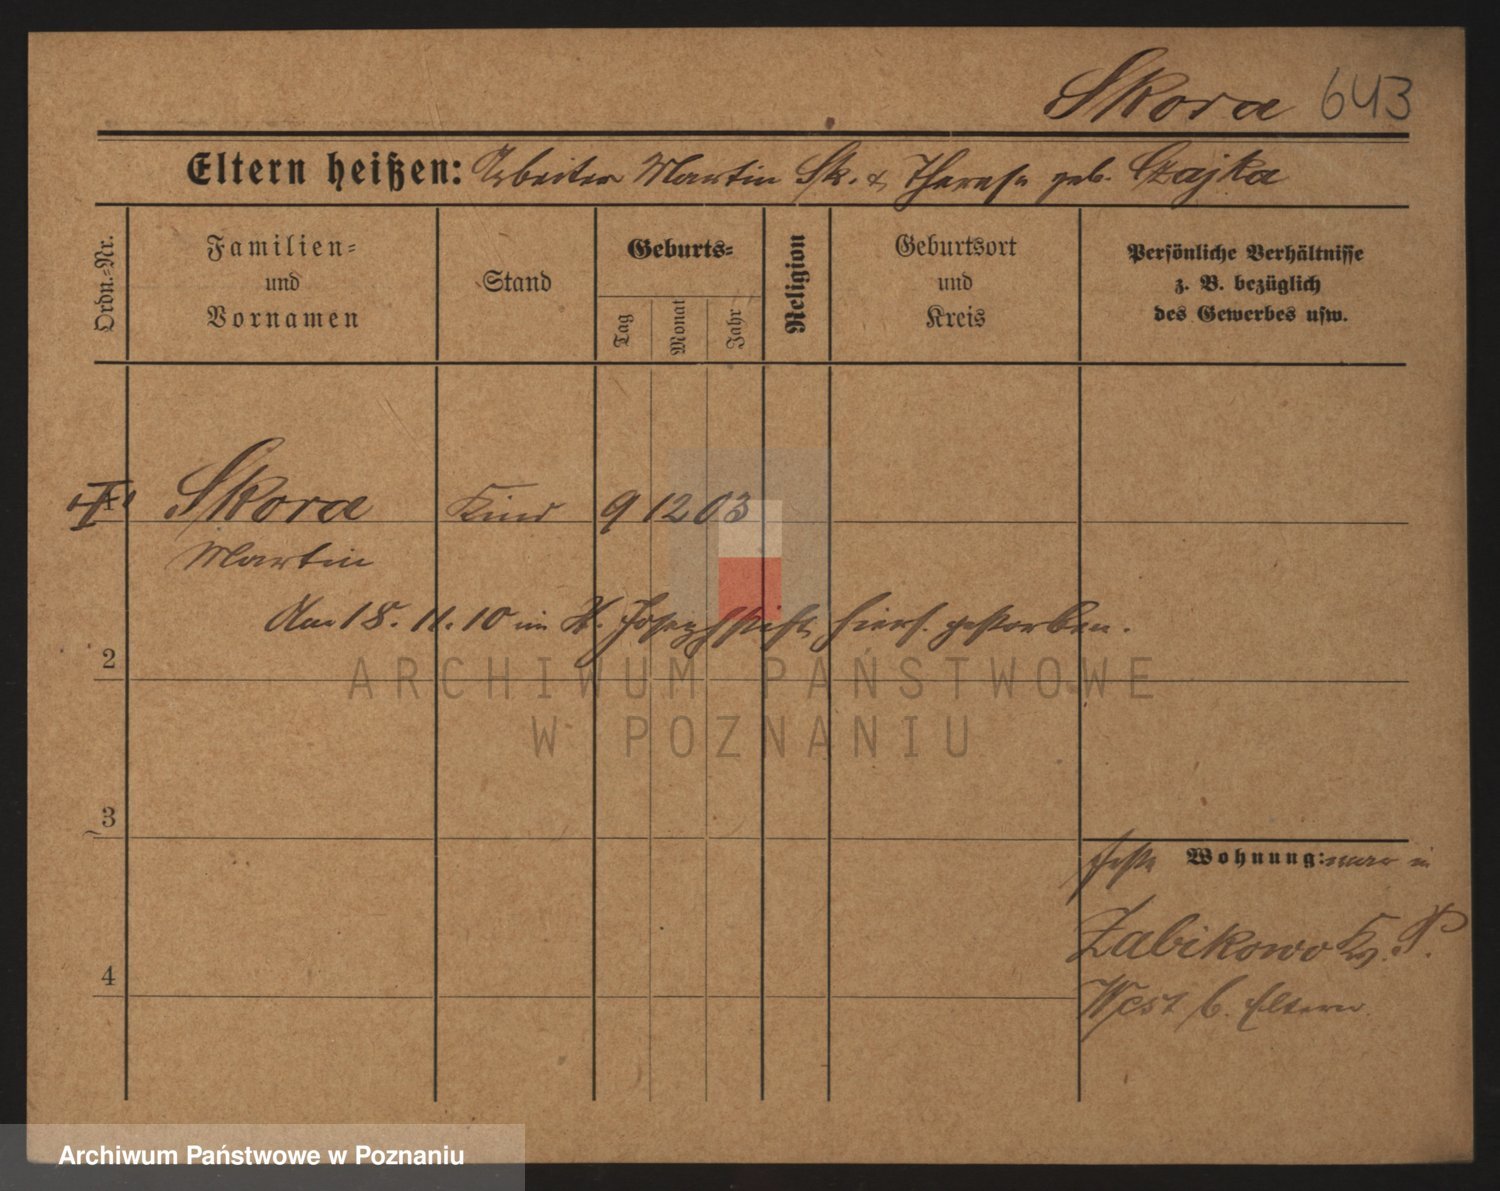 Skora 643
Eltern heißen: Arbeiter Martin Sk. & Therese geb. Czajka
Ordn.-Nr.
Familien-
und
Vornamen
Stand
Geburts-
Tag
Monat
Jahr
Religion
Geburtsort
und
Kreis
Persönliche Verhältnisse
z. B. bezüglich
des Gewerbes usw.
1 Skora Kind 9 12 03
Martin
Am 18. 11. 10 im St. Josephstift hiers. gestorben.
2
3
4
feste Wohnung: war in
Zabikowo Kr. P.
West b. Eltern
ARCHIWUM PAŃSTWOWE
W POZNANIU
Archiwum Państwowe w Poznaniu